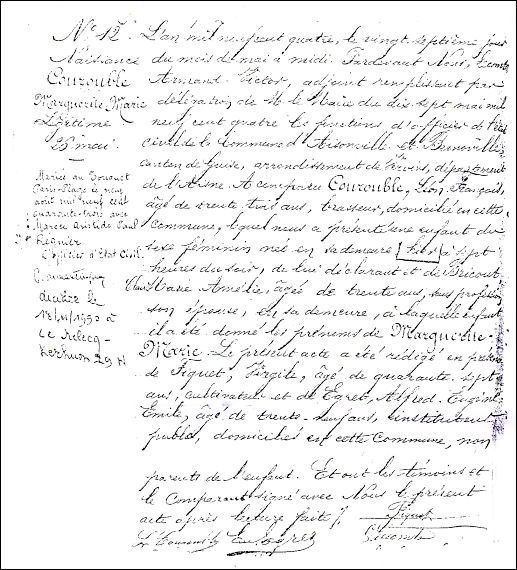 N° 12
Naissance
Courouble
Marguerite Marie
Légitime
26 mai.
Mariée au Touquet
Paris-Plage le neuf
août mil neuf cent
quarante-trois avec
Marcu Aristide Paul
Requier
L'officier d'Etat Civil.
décédée le
12/11/1990 à
Le Relecq-
Kerhuon 29 N
L'an mil neuf cent quatre, le vingt septième jour
du mois de mai à midi. Pardevant Nous, Lecomte
Armand Victor, adjoint remplissant par
délégation de M. le Maire du dix sept mai mil
neuf cent quatre les fonctions d'officier de l'état
civil de la commune d'Aisonville et Bernoville
canton de Guise, arrondissement de Vervins, département
de l'Aisne. A comparu Courouble, Léon François,
âgé de trente trois ans, brasseur, domicilié en cette
commune, lequel nous a présenté un enfant du
sexe féminin née en sa demeure hier à sept
heures du soir, de lui déclarant et de Bricout
Marie Amélie, âgée de trente ans, sans profession
son épouse, en sa demeure, à laquelle enfant
il a été donné les prénoms de Marguerite
Marie. Le présent acte a été rédigé en présence
de Piquet, Virgile, âgé de quarante-sept
ans, cultivateur et de Egret, Alfred Eugène
Emile, âgé de trente-neuf ans, instituteur
public, domiciliés en cette Commune, non
parents de l'enfant. Et ont les témoins et
le Comparant signé avec Nous le présent
acte après lecture faite /.
Piquet
L. Courouble Egret Lecomte